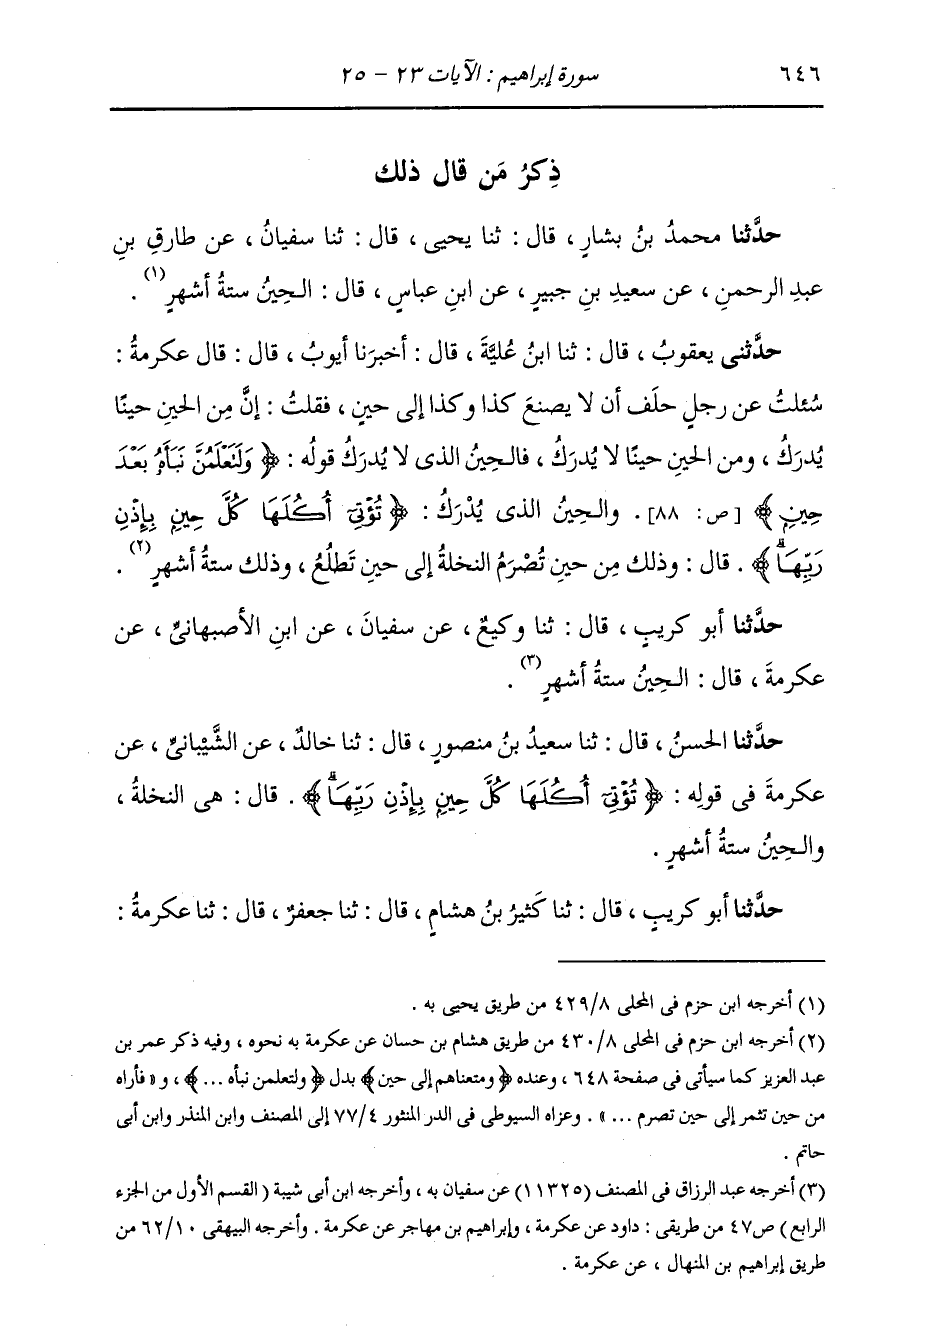 ٦٤٦ سورة إبراهيم : الآيات ٢٣ - ٢٥
ذِكرُ مَن قال ذلك
حدَّثنا محمدُ بنُ بشارٍ ، قال : ثنا يحيى ، قال : ثنا سفيانُ ، عن طارقِ بنِ
عبدِ الرحمنِ ، عن سعيدِ بنِ جبيرٍ ، عن ابنِ عباسٍ ، قال : الـحِينُ ستةُ أشهرٍ(١) .
حدَّثنى يعقوبُ ، قال : ثنا ابنُ عُليَّةَ ، قال : أخبرَنا أيوبُ ، قال : قال عكرمةُ :
سُئلتُ عن رجلٍ حلَف أن لا يصنعَ كذا وكذا إلى حينٍ ، فقلتُ : إنَّ مِن الحينِ حينًا
يُدرَكُ ، ومن الحينِ حينًا لا يُدرَكُ ، فالـحِينُ الذى لا يُدرَكُ قولُه : ﴿ وَلَنَعْلَمُنَّ نَبَأَهُ بَعْدَ
حِينٍ ﴾ [ ص : ٨٨] . والـحِينُ الذى يُدْرَكُ : ﴿ تُؤْتِىٓ أُكُلَهَا كُلَّ حِينٍ بِإِذْنِ
رَبِّهَاۗ ﴾ . قال : وذلك مِن حينِ تُصْرَمُ النخلةُ إلى حينِ تَطلُعُ ، وذلك ستةُ أشهرٍ(٢) .
حدَّثنا أبو كريبٍ ، قال : ثنا وكيعٌ ، عن سفيانَ ، عن ابنِ الأصبهانىِّ ، عن
عكرمةَ ، قال : الـحِينُ ستةُ أشهرٍ(٣) .
حدَّثنا الحسنُ ، قال : ثنا سعيدُ بنُ منصورٍ ، قال : ثنا خالدٌ ، عن الشَّيْبانىِّ ، عن
عكرمةَ فى قولِه : ﴿ تُؤْتِىٓ أُكُلَهَا كُلَّ حِينٍ بِإِذْنِ رَبِّهَاۗ ﴾ . قال : هى النخلةُ ،
والـحِينُ ستةُ أشهرٍ .
حدَّثنا أبو كريبٍ ، قال : ثنا كَثيرُ بنُ هشامٍ ، قال : ثنا جعفرٌ ، قال : ثنا عكرمةُ :
(١) أخرجه ابن حزم فى المحلى ٤٢٩/٨ من طريق يحيى به .
(٢) أخرجه ابن حزم فى المحلى ٤٣٠/٨ من طريق هشام بن حسان عن عكرمة به نحوه ، وفيه ذكر عمر بن
عبد العزيز كما سيأتى فى صفحة ٦٤٨ ، وعنده ﴿ ومتعناهم إلى حين ﴾ بدل ﴿ ولتعلمن نبأه ... ﴾ ، و « فأراه
من حين تثمر إلى حين تصرم ... » . وعزاه السيوطى فى الدر المنثور ٧٧/٤ إلى المصنف وابن المنذر وابن أبى
حاتم .
(٣) أخرجه عبد الرزاق فى المصنف (١١٣٢٥) عن سفيان به ، وأخرجه ابن أبى شيبة ( القسم الأول من الجزء
الرابع ) ص٤٧ من طريقى : داود عن عكرمة ، وإبراهيم بن مهاجر عن عكرمة . وأخرجه البيهقى ٦٢/١٠ من
طريق إبراهيم بن المنهال ، عن عكرمة .